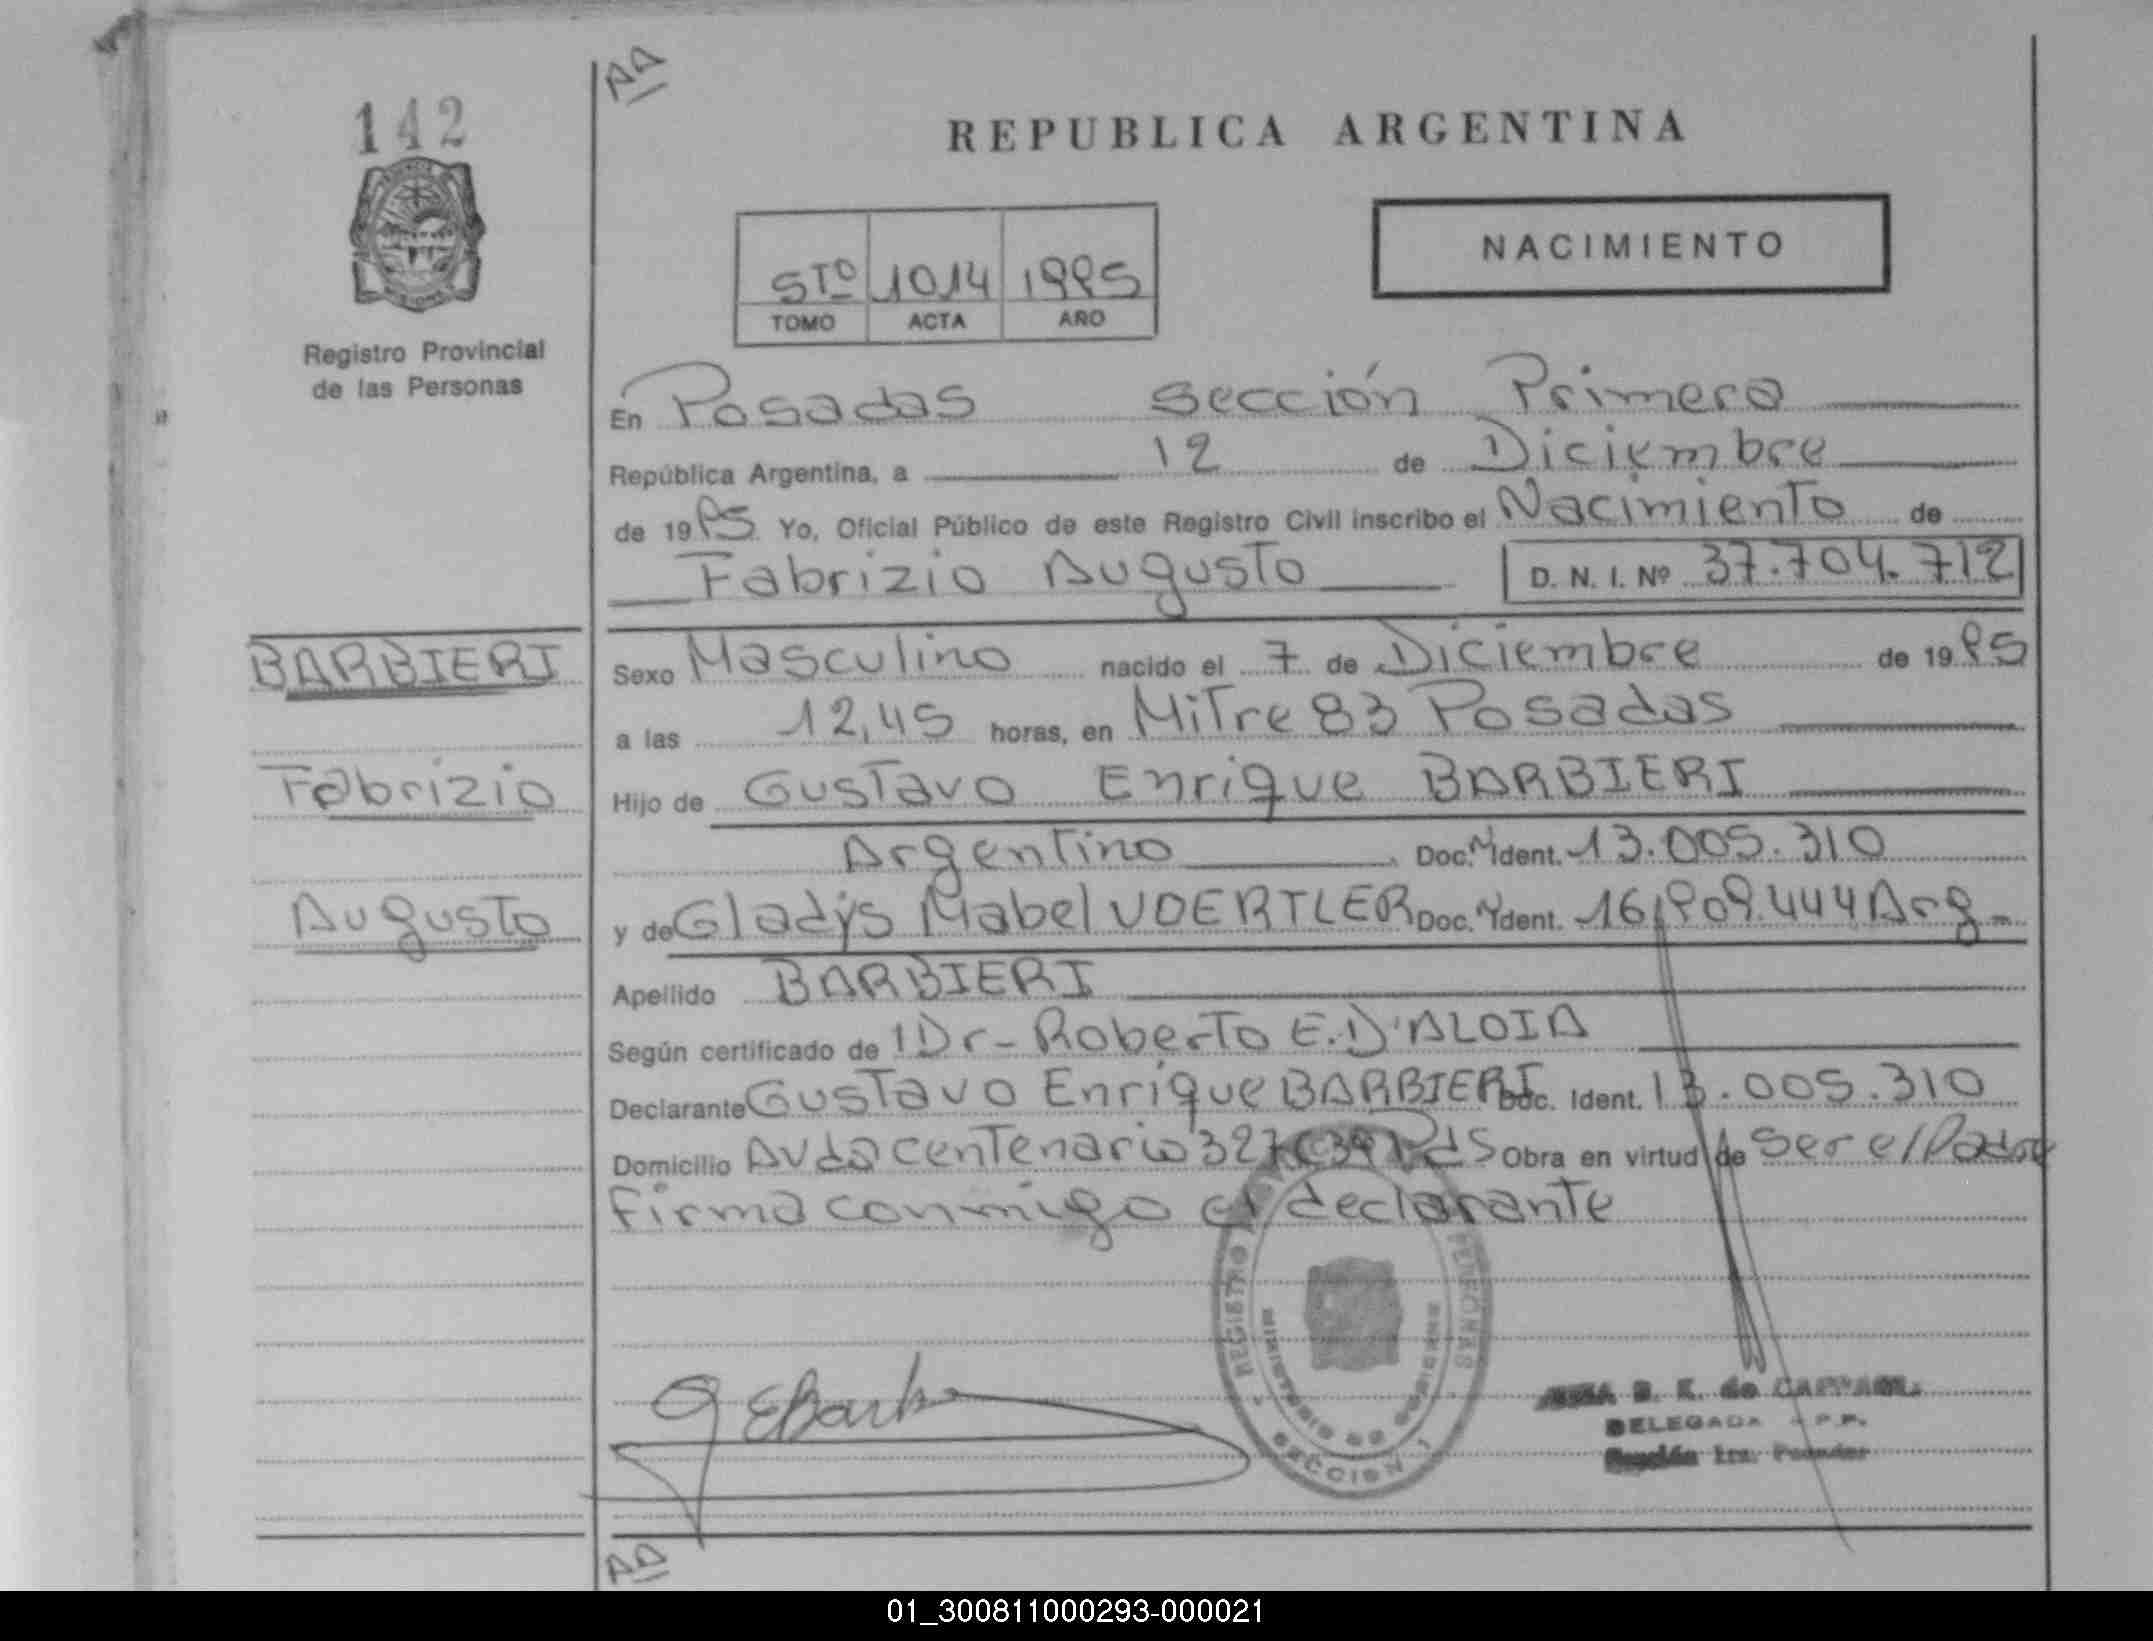 AA
142
REPUBLICA ARGENTINA
NACIMIENTO
5TO 1014 1995
TOMO ACTA AÑO
Registro Provincial
de las Personas
En Posadas sección Primera
República Argentina, a 12 de Diciembre
de 1995 Yo, Oficial Público de este Registro Civil inscribo el Nacimiento de
Fabrizio Augusto D. N. I. Nº 37.704.712
BARBIERI
Fabrizio
Augusto
Sexo Masculino nacido el 7 de Diciembre de 1995
a las 12,45 horas, en Mitre 83 Posadas
Hijo de Gustavo Enrique BARBIERI
Argentino Doc. Ident. 13.005.310
y de Gladys Mabel VOERTLER Doc. Ident. 16.909.444 Arg.
Apellido BARBIERI
Según certificado de Dr- Roberto E. D'ALOIA
Declarante Gustavo Enrique BARBIERI Doc. Ident. 13.005.310
Domicilio Avda centenario 327 Pds Obra en virtud de ser el Padre
Firma conmigo el declarante
REGISTRO PERSONAS
MINISTERIO DE GOBIERNO
SECCION 1
B. K. de
DELEGADA
Sección 1ra. Posadas
AA
01_300811000293-000021